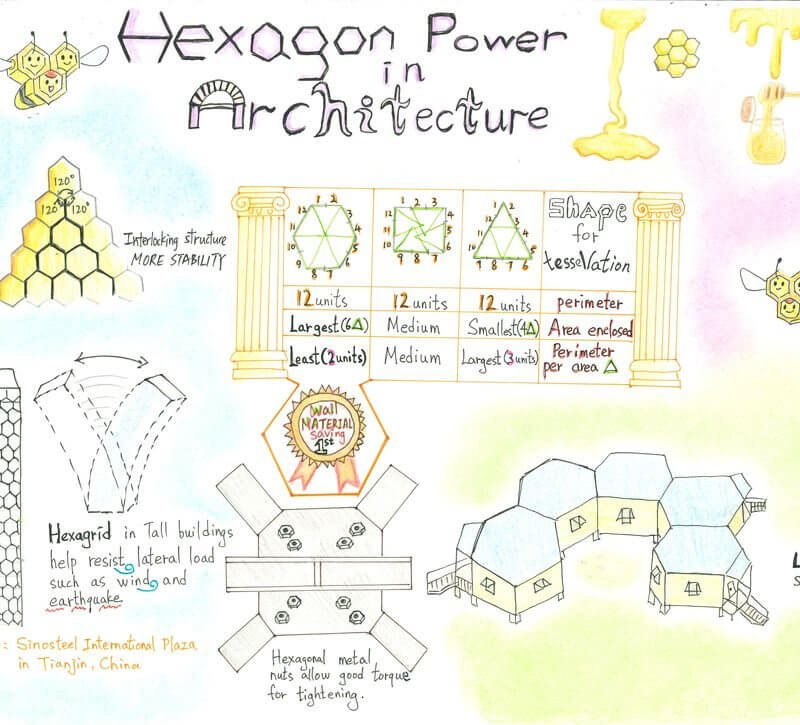 Hexagon Power
in
Architecture
120°
120° 120°
Interlocking structure
MORE STABILITY
1 2
12 3
11 4
10 5
9 6
8 7
1 2 3
12 4
11 5
10 6
9 8 7
1
12 2
11 3
10 4
9 5
8 7 6
SHAPE
for
tessellation
12 units
12 units
12 units
perimeter
Largest (6△)
Medium
Smallest (4△)
Area enclosed
Least (2 units)
Medium
Largest (3 units)
Perimeter
per area △
Wall
MATERIAL
saving
1st
Hexagrid in Tall buildings
help resist lateral load
such as wind and
earthquake
: Sinosteel International Plaza
in Tianjin, China
Hexagonal metal
nuts allow good torque
for tightening.